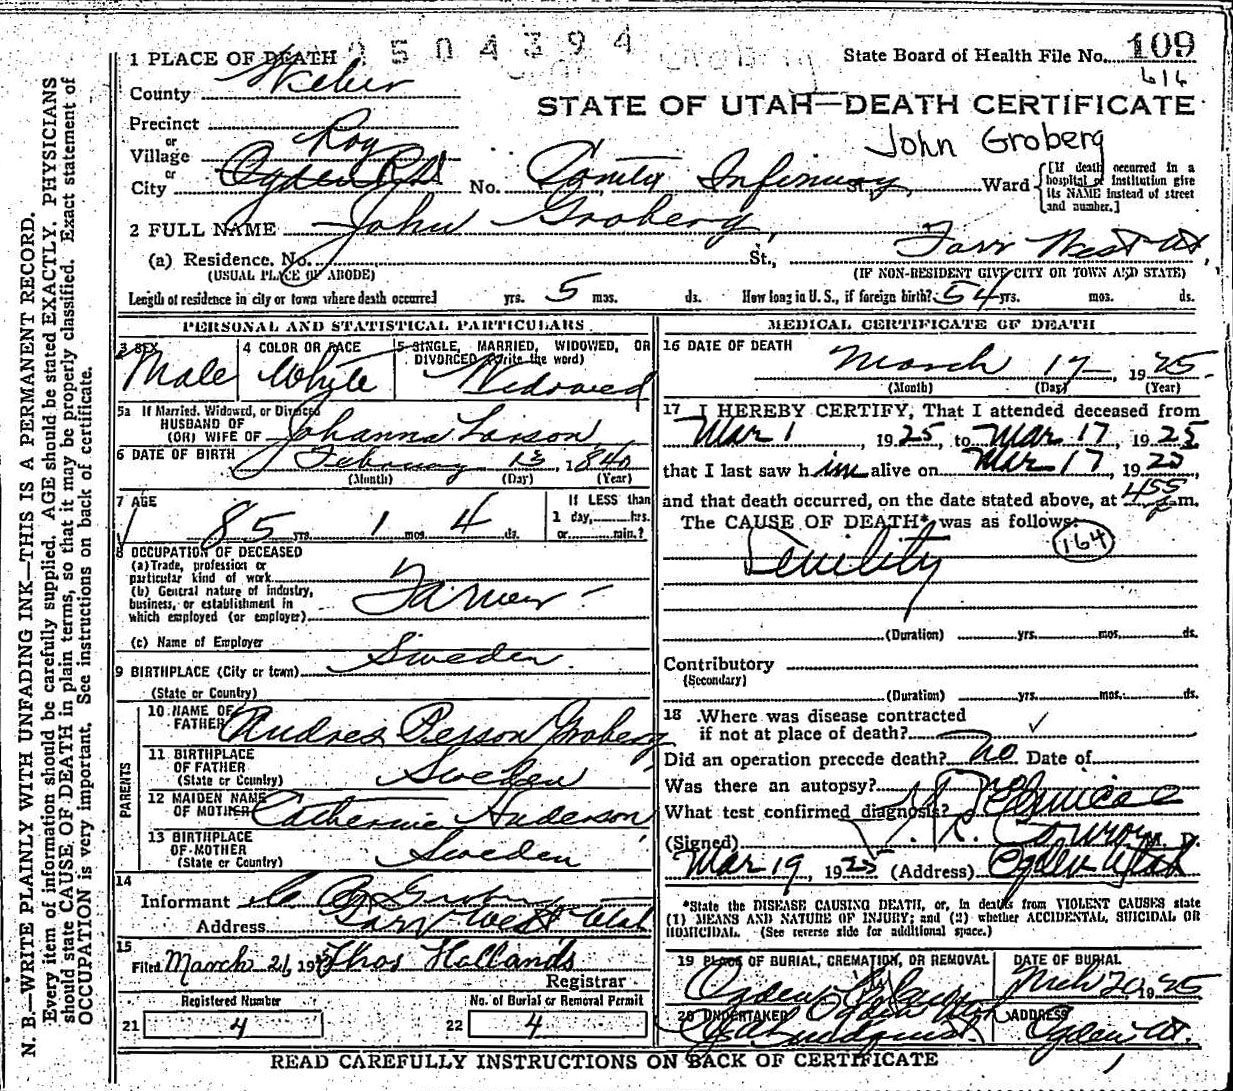 2504394
State Board of Health File No. 109
616
1 PLACE OF DEATH
County Weber
STATE OF UTAH—DEATH CERTIFICATE
Precinct
or
Village Roy
John Groberg
or
City Ogden No. Infirmary St., Ward
[If death occurred in a
hospital or institution give
its NAME instead of street
and number.]
2 FULL NAME John Groberg,
(a) Residence. No. St., Farr West Ut,
(USUAL PLACE OF ABODE) (IF NON-RESIDENT GIVE CITY OR TOWN AND STATE)
Length of residence in city or town where death occurred yrs. 5 mos. ds. How long in U.S., if foreign birth? 54 yrs. mos. ds.
PERSONAL AND STATISTICAL PARTICULARS
3 SEX
Male
4 COLOR OR RACE
White
5 SINGLE, MARRIED, WIDOWED, OR
DIVORCED (Write the word)
Widowed
5a If Married, Widowed, or Divorced
HUSBAND OF
(OR) WIFE OF Johanna Larson
6 DATE OF BIRTH February 13, 1840
(Month) (Day) (Year)
7 AGE
85 yrs. 1 mos. 4 ds.
If LESS than
1 day, hrs.
or min.?
8 OCCUPATION OF DECEASED
(a) Trade, profession or
particular kind of work
(b) General nature of industry,
business, or establishment in
which employed (or employer)
Farmer
(c) Name of Employer
9 BIRTHPLACE (City or town) Sweden
(State or Country)
PARENTS
10 NAME OF
FATHER Andres Person Groberg
11 BIRTHPLACE
OF FATHER
(State or Country) Sweden
12 MAIDEN NAME
OF MOTHER Catherine Anderson
13 BIRTHPLACE
OF MOTHER
(State or Country) Sweden
14
Informant
Address Farr West Utah
15
Filed March 21, 19 Thos Hollands
Registrar
Registered Number
21 4
No. of Burial or Removal Permit
22 4
MEDICAL CERTIFICATE OF DEATH
16 DATE OF DEATH
March 17, 1925
(Month) (Day) (Year)
17 I HEREBY CERTIFY, That I attended deceased from
Mar 1, 1925, to Mar 17, 1925
that I last saw him alive on Mar 17, 1925
and that death occurred, on the date stated above, at 455 m.
The CAUSE OF DEATH* was as follows:
Senility
164
(Duration) yrs. mos. ds.
Contributory
(Secondary)
(Duration) yrs. mos. ds.
18 Where was disease contracted
if not at place of death?
Did an operation precede death? No Date of
Was there an autopsy?
What test confirmed diagnosis?
(Signed) M. D.
Mar 19, 1925 (Address) Ogden Utah
*State the DISEASE CAUSING DEATH, or, in deaths from VIOLENT CAUSES state
(1) MEANS AND NATURE OF INJURY; and (2) whether ACCIDENTAL, SUICIDAL OR
HOMICIDAL. (See reverse side for additional space.)
19 PLACE OF BURIAL, CREMATION, OR REMOVAL
Ogden
DATE OF BURIAL
Mch 20, 1925
20 UNDERTAKER
Lindquist
ADDRESS
Ogden Ut.
READ CAREFULLY INSTRUCTIONS ON BACK OF CERTIFICATE
N. B.—WRITE PLAINLY WITH UNFADING INK—THIS IS A PERMANENT RECORD.
Every item of information should be carefully supplied. AGE should be stated EXACTLY. PHYSICIANS
should state CAUSE OF DEATH in plain terms, so that it may be properly classified. Exact statement of
OCCUPATION is very important. See instructions on back of certificate.